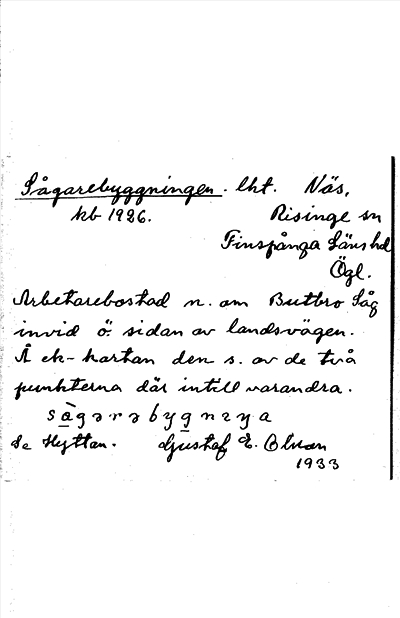 Sågarebyggningen. lht. Näs,
kb 1926. Risinge sn
Finspånga Läns hd
Ögl.
Arbetarebostad n. om Butbro Såg
invid ö. sidan av landsvägen.
Å ek-kartan den s. av de två
punkterna där intill varandra.
sågərəbygnɪŋa
Se Hyttan. Gustaf E. Olsson
1933